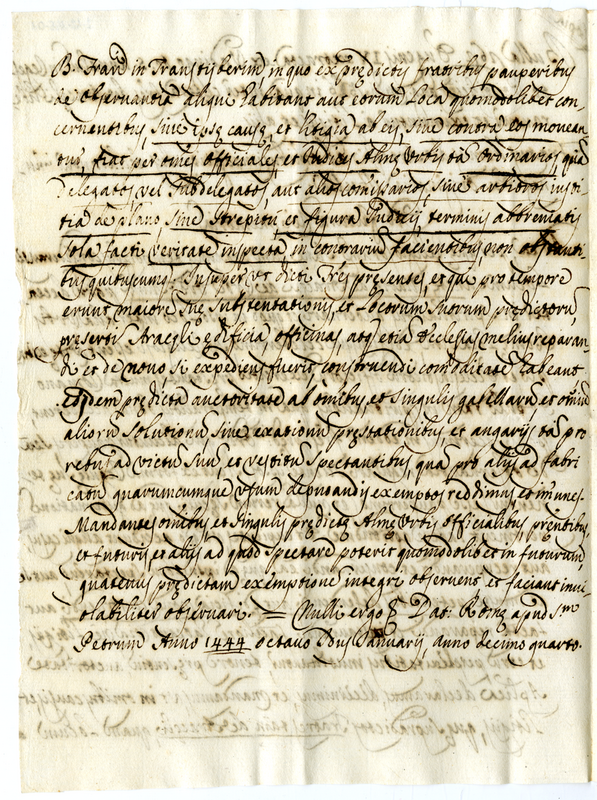 B. Franci in Transtyberim in quo ex prędictis fratribus pauperibus
de observantia aliqui habitant aut eorum Loca quomodolibet con
cernentibus, sive ipsę causę, et litigia ab eis, sive contra eos movean
tur, fiat per omnes officiales, et Iudices Almę Urbis tã ordinarios, quã
delegatos, vel subdelegatos, aut alios comissarios, sive arbitros iusti
tia de plano sine strepitu, et figura Iudicij, terminis abbreviatis
sola facti veritate inspecta in contrarium facientibus non obstanti
bus quibuscumq. Insuper ut dicti Fres presentes, et qui pro tempore
erunt maiore suę substentationis, et Locorum suorum prędictorũ,
presertĩ Aracęli ędificia officinas, atq. etiã Ecclesias melius reparan
di et de novo, si expediens fuerit, construendi comoditatẽ habeant
eosdem prędicta auctoritate ab omibus, et singulis gabellarũ, et omniũ
aliorũ solutionũ sive exationum pręstationibus, et angarijs tã pro
rebus ad victum suũ, et vestitũ spectantibus, quã pro alijs ad fabri
cam quarumcumque usum deputandis exemptos reddimus, et imunes.
Mandantes omibus, et singulis prędictę Almę Urbis officialibus pręntibus,
et futuris, et alijs ad quos spectare poterit quomodolibet in futurum
quatenus prędictam exemptionẽ integre observent, et faciant invi
olabiliter observari. = Nulli ergo & Dat. Romę apud S.m
Petrum Anno 1444 octavo Idus Ianuarij anno decimo quarto.